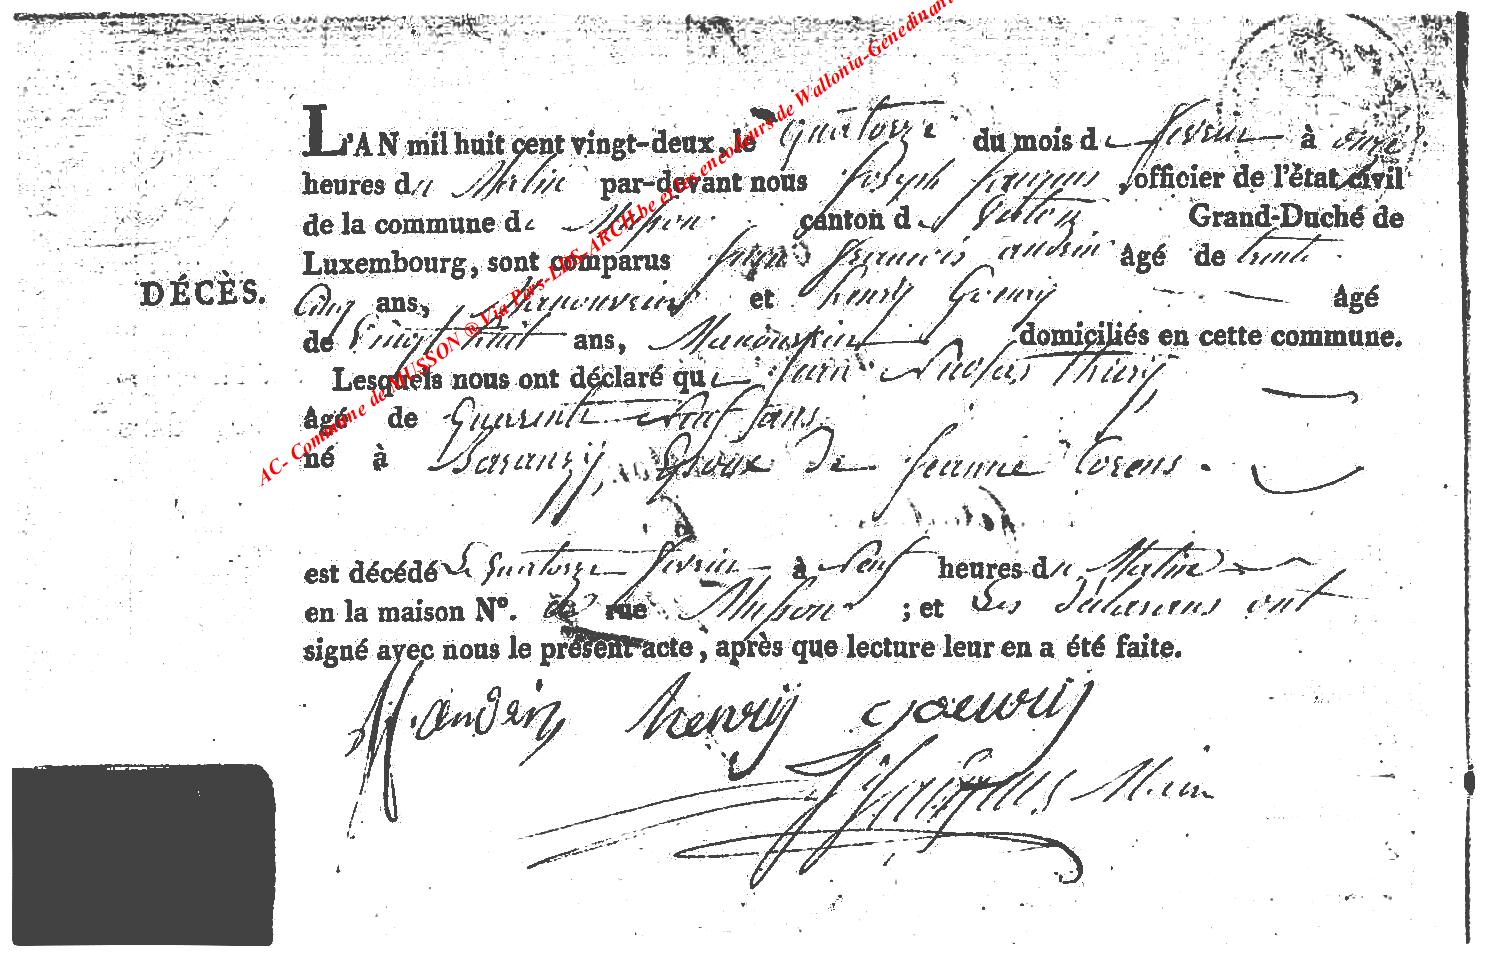 AC- Commune de MUSSON ® Via Pers-LDS-ARCH.be et les encodeurs de Wallonia-Genedinant
L'AN mil huit cent vingt-deux, le quatorze du mois de fevrier à onze
heures du Matin par-devant nous Joseph françois, officier de l'état civil
de la commune de Musson canton de Virton Grand-Duché de
Luxembourg, sont comparus Jean francois andrin âgé de trente
Cinq ans, Manouvrier et henry Goury âgé
de Vingt huit ans, Manouvrier domiciliés en cette commune.
DÉCÈS.
Lesquels nous ont déclaré que Jean Nicolas Thiry
âgé de Quarente Neuf ans.
né à Baranzy, Epoux de Jeanne Lorens.
est décédé Le quatorze fevrier à Neuf heures du Matin
en la maison N°. rue Musson ; et Les déclarans ont
signé avec nous le présent acte, après que lecture leur en a été faite.
andrin henrÿ Goeurÿ
françois Maire